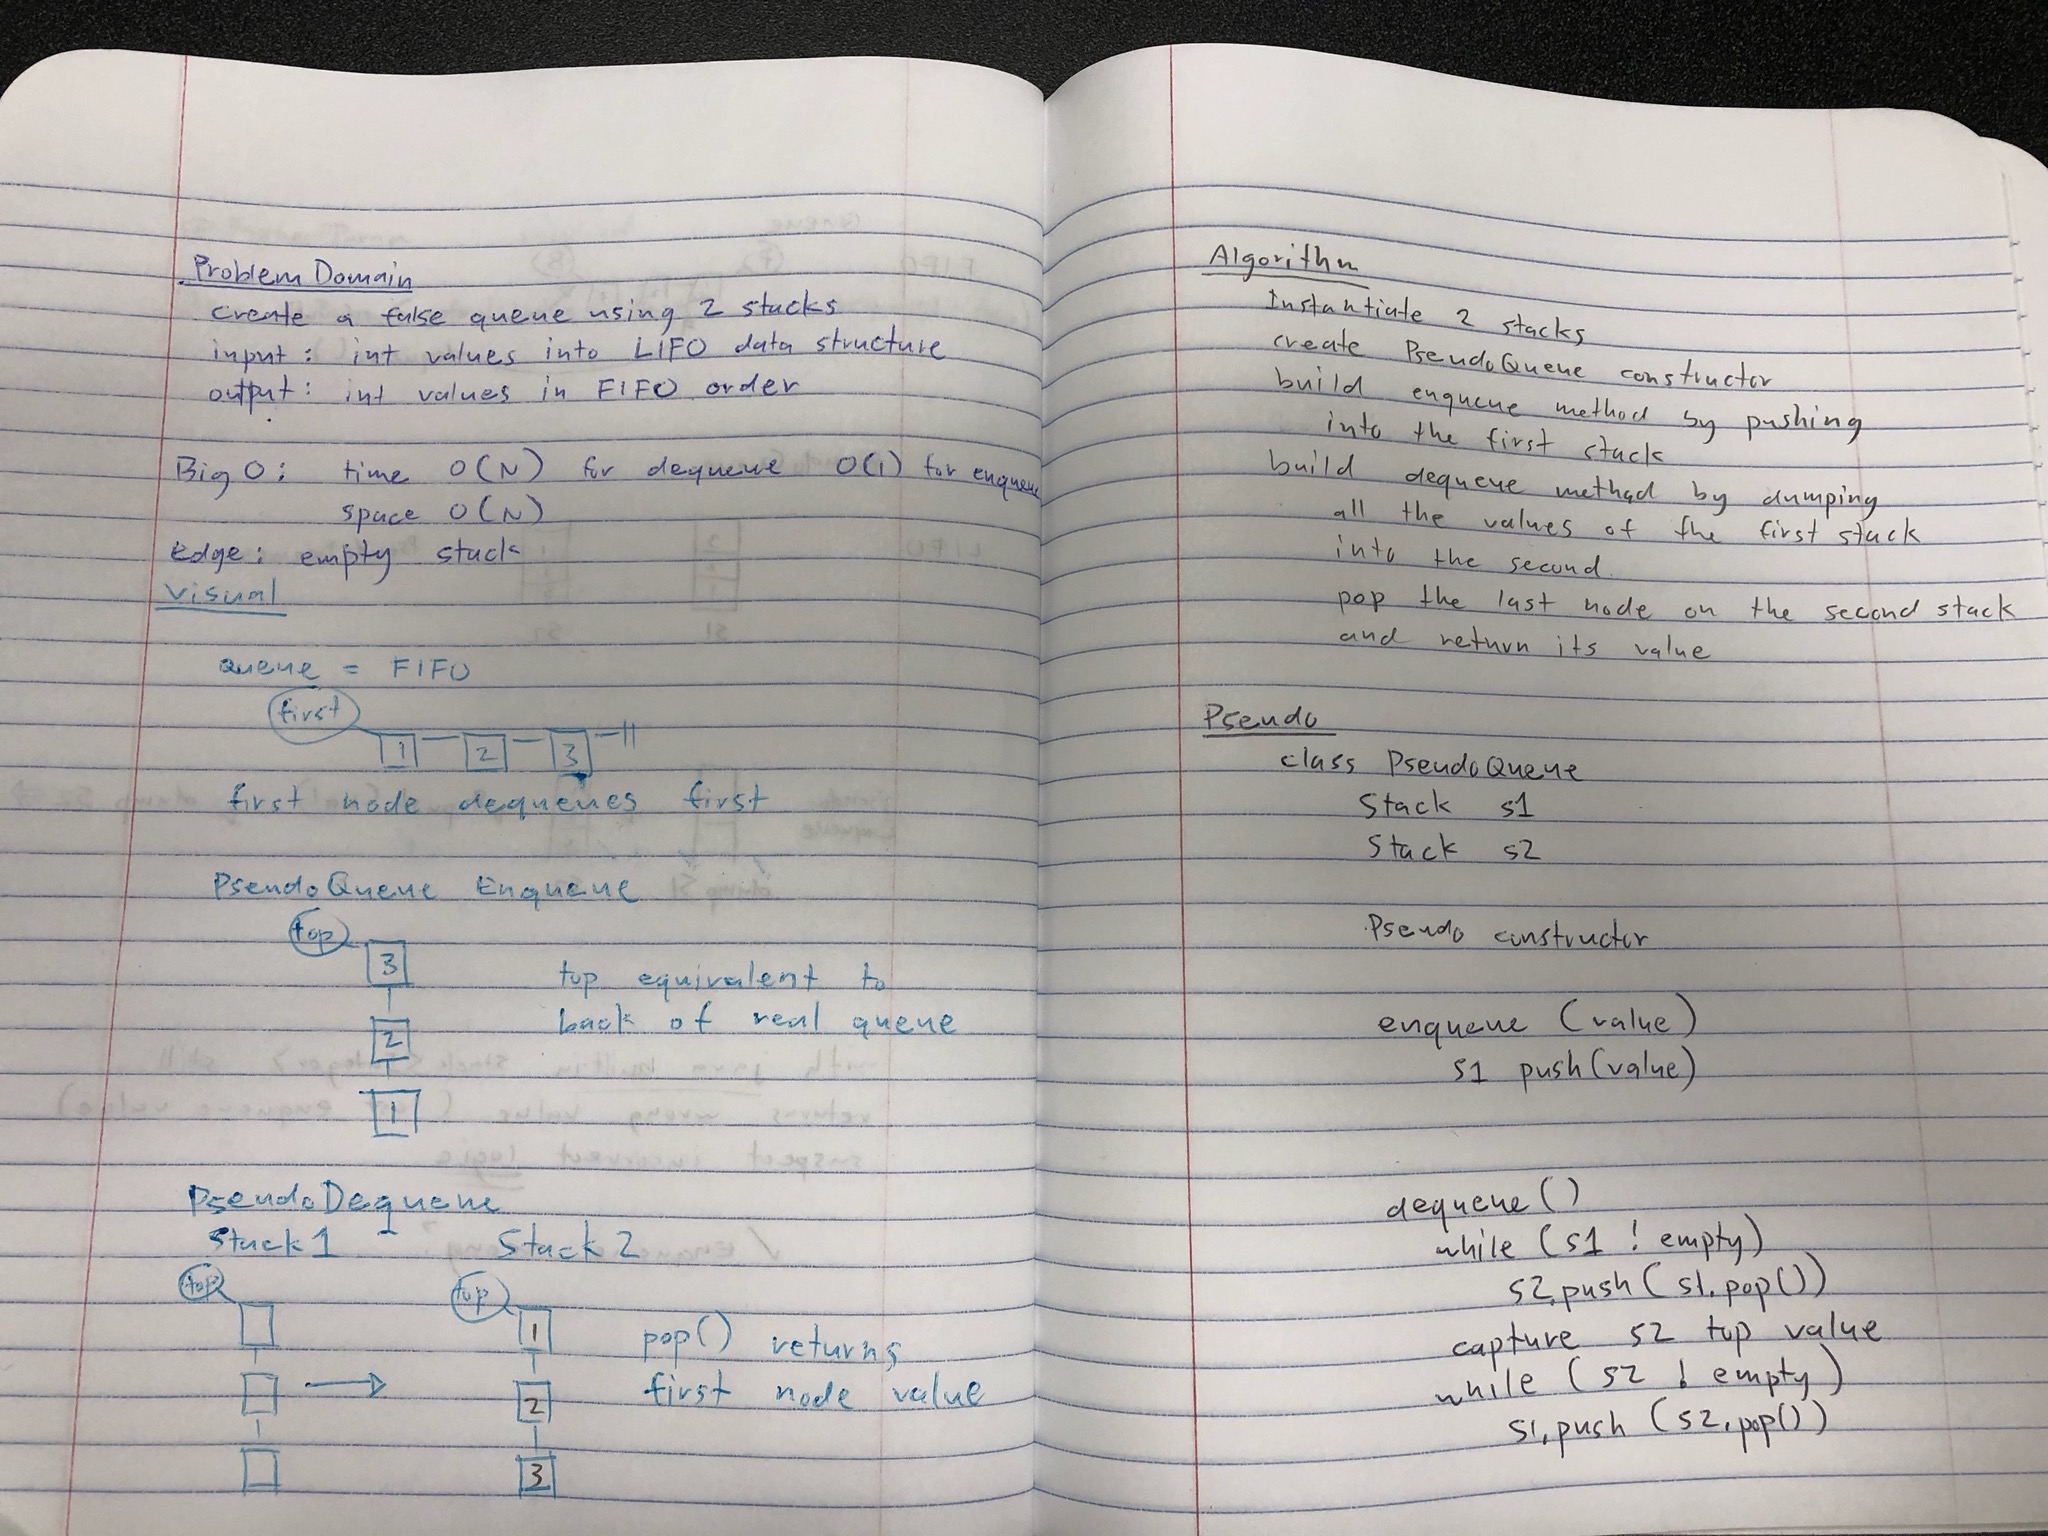 Problem Domain
create a false queue using 2 stacks
input: int values into LIFO data structure
output: int values in FIFO order
Big O: time O(N) for dequeue O(1) for enqueue
space O(N)
Edge: empty stack
Visual
queue = FIFO
first
1 2 3
first node dequeues first
PseudoQueue Enqueue
top
3
top equivalent to
back of real queue
2
1
PseudoDequeue
Stack 1 Stack 2
top top
1
pop() returns
first node value
2
3
Algorithm
Instantiate 2 stacks
create PseudoQueue constructor
build enqueue method by pushing
into the first stack
build dequeue method by dumping
all the values of the first stack
into the second.
pop the last node on the second stack
and return its value
Pseudo
class PseudoQueue
Stack s1
Stack s2
Pseudo constructor
enqueue (value)
s1 push(value)
dequeue()
while (s1 ! empty)
s2.push(s1.pop())
capture s2 top value
while (s2 ! empty)
s1.push(s2.pop())